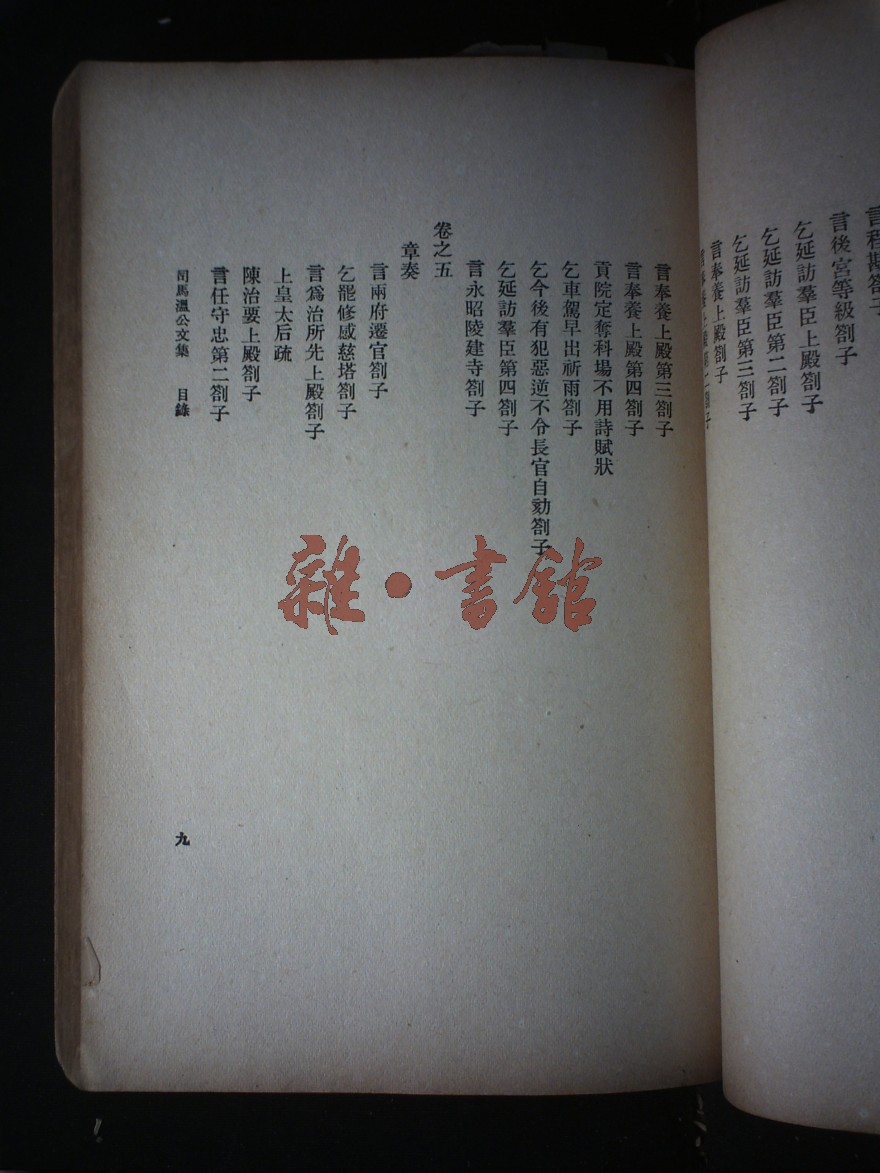 言程戡劄子
言後宮等級劄子
乞延訪羣臣上殿劄子
乞延訪羣臣第二劄子
乞延訪羣臣第三劄子
言奉養上殿劄子
言奉養上殿第二劄子
言奉養上殿第三劄子
言奉養上殿第四劄子
貢院定奪科場不用詩賦狀
乞車駕早出祈雨劄子
乞今後有犯惡逆不令長官自劾劄子
乞延訪羣臣第四劄子
言永昭陵建寺劄子
卷之五
章奏
言兩府遷官劄子
乞罷修感慈塔劄子
言爲治所先上殿劄子
上皇太后疏
陳治要上殿劄子
言任守忠第二劄子
司馬溫公文集 目錄
九
雜·書館